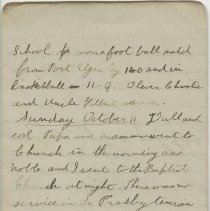 School won a foot ball match
from Port Elgin by 1-0 and in
basketball 11-9. Olive Christie
and Uncle Gilbert
Sunday October 11 Dull and
cool Papa and mamma went to
Church in the morning and
Nettie and I went to the Baptist
Church at night. There was no
service in the Presbyterian